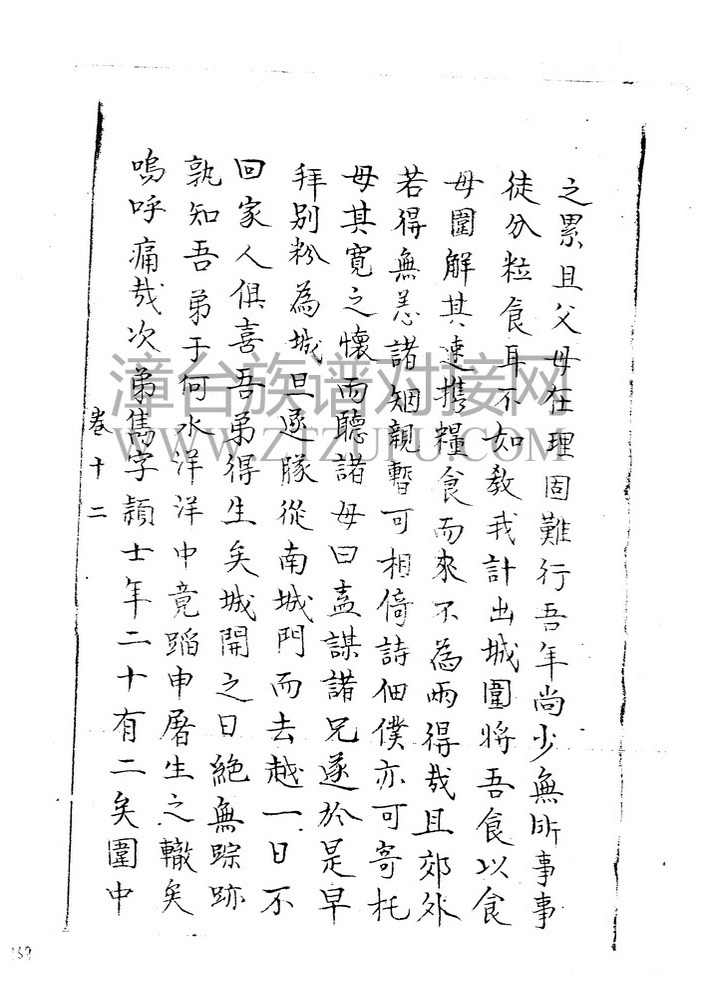 之累且父母在理固難行吾年尚少無所事事
徒分粒食耳不如教我計出城圍將吾食以食
母圍解其速携糧食而來不為兩得哉且郊外
若得無恙諸姻親暫可相倚詩佃僕亦可寄托
母其寬之懷而聽諸母曰盍謀諸兄遂於是早
拜別粉為城旦逐隊從南城門而去越一日不
回家人俱喜吾弟得生矣城開之日絕無踪跡
孰知吾弟于何水洋洋中竟蹈申屠生之轍矣
嗚呼痛哉次弟雋字頴士年二十有二矣圍中
卷十二
159
漳台族谱对接网
WWW.ZTZUPU.COM